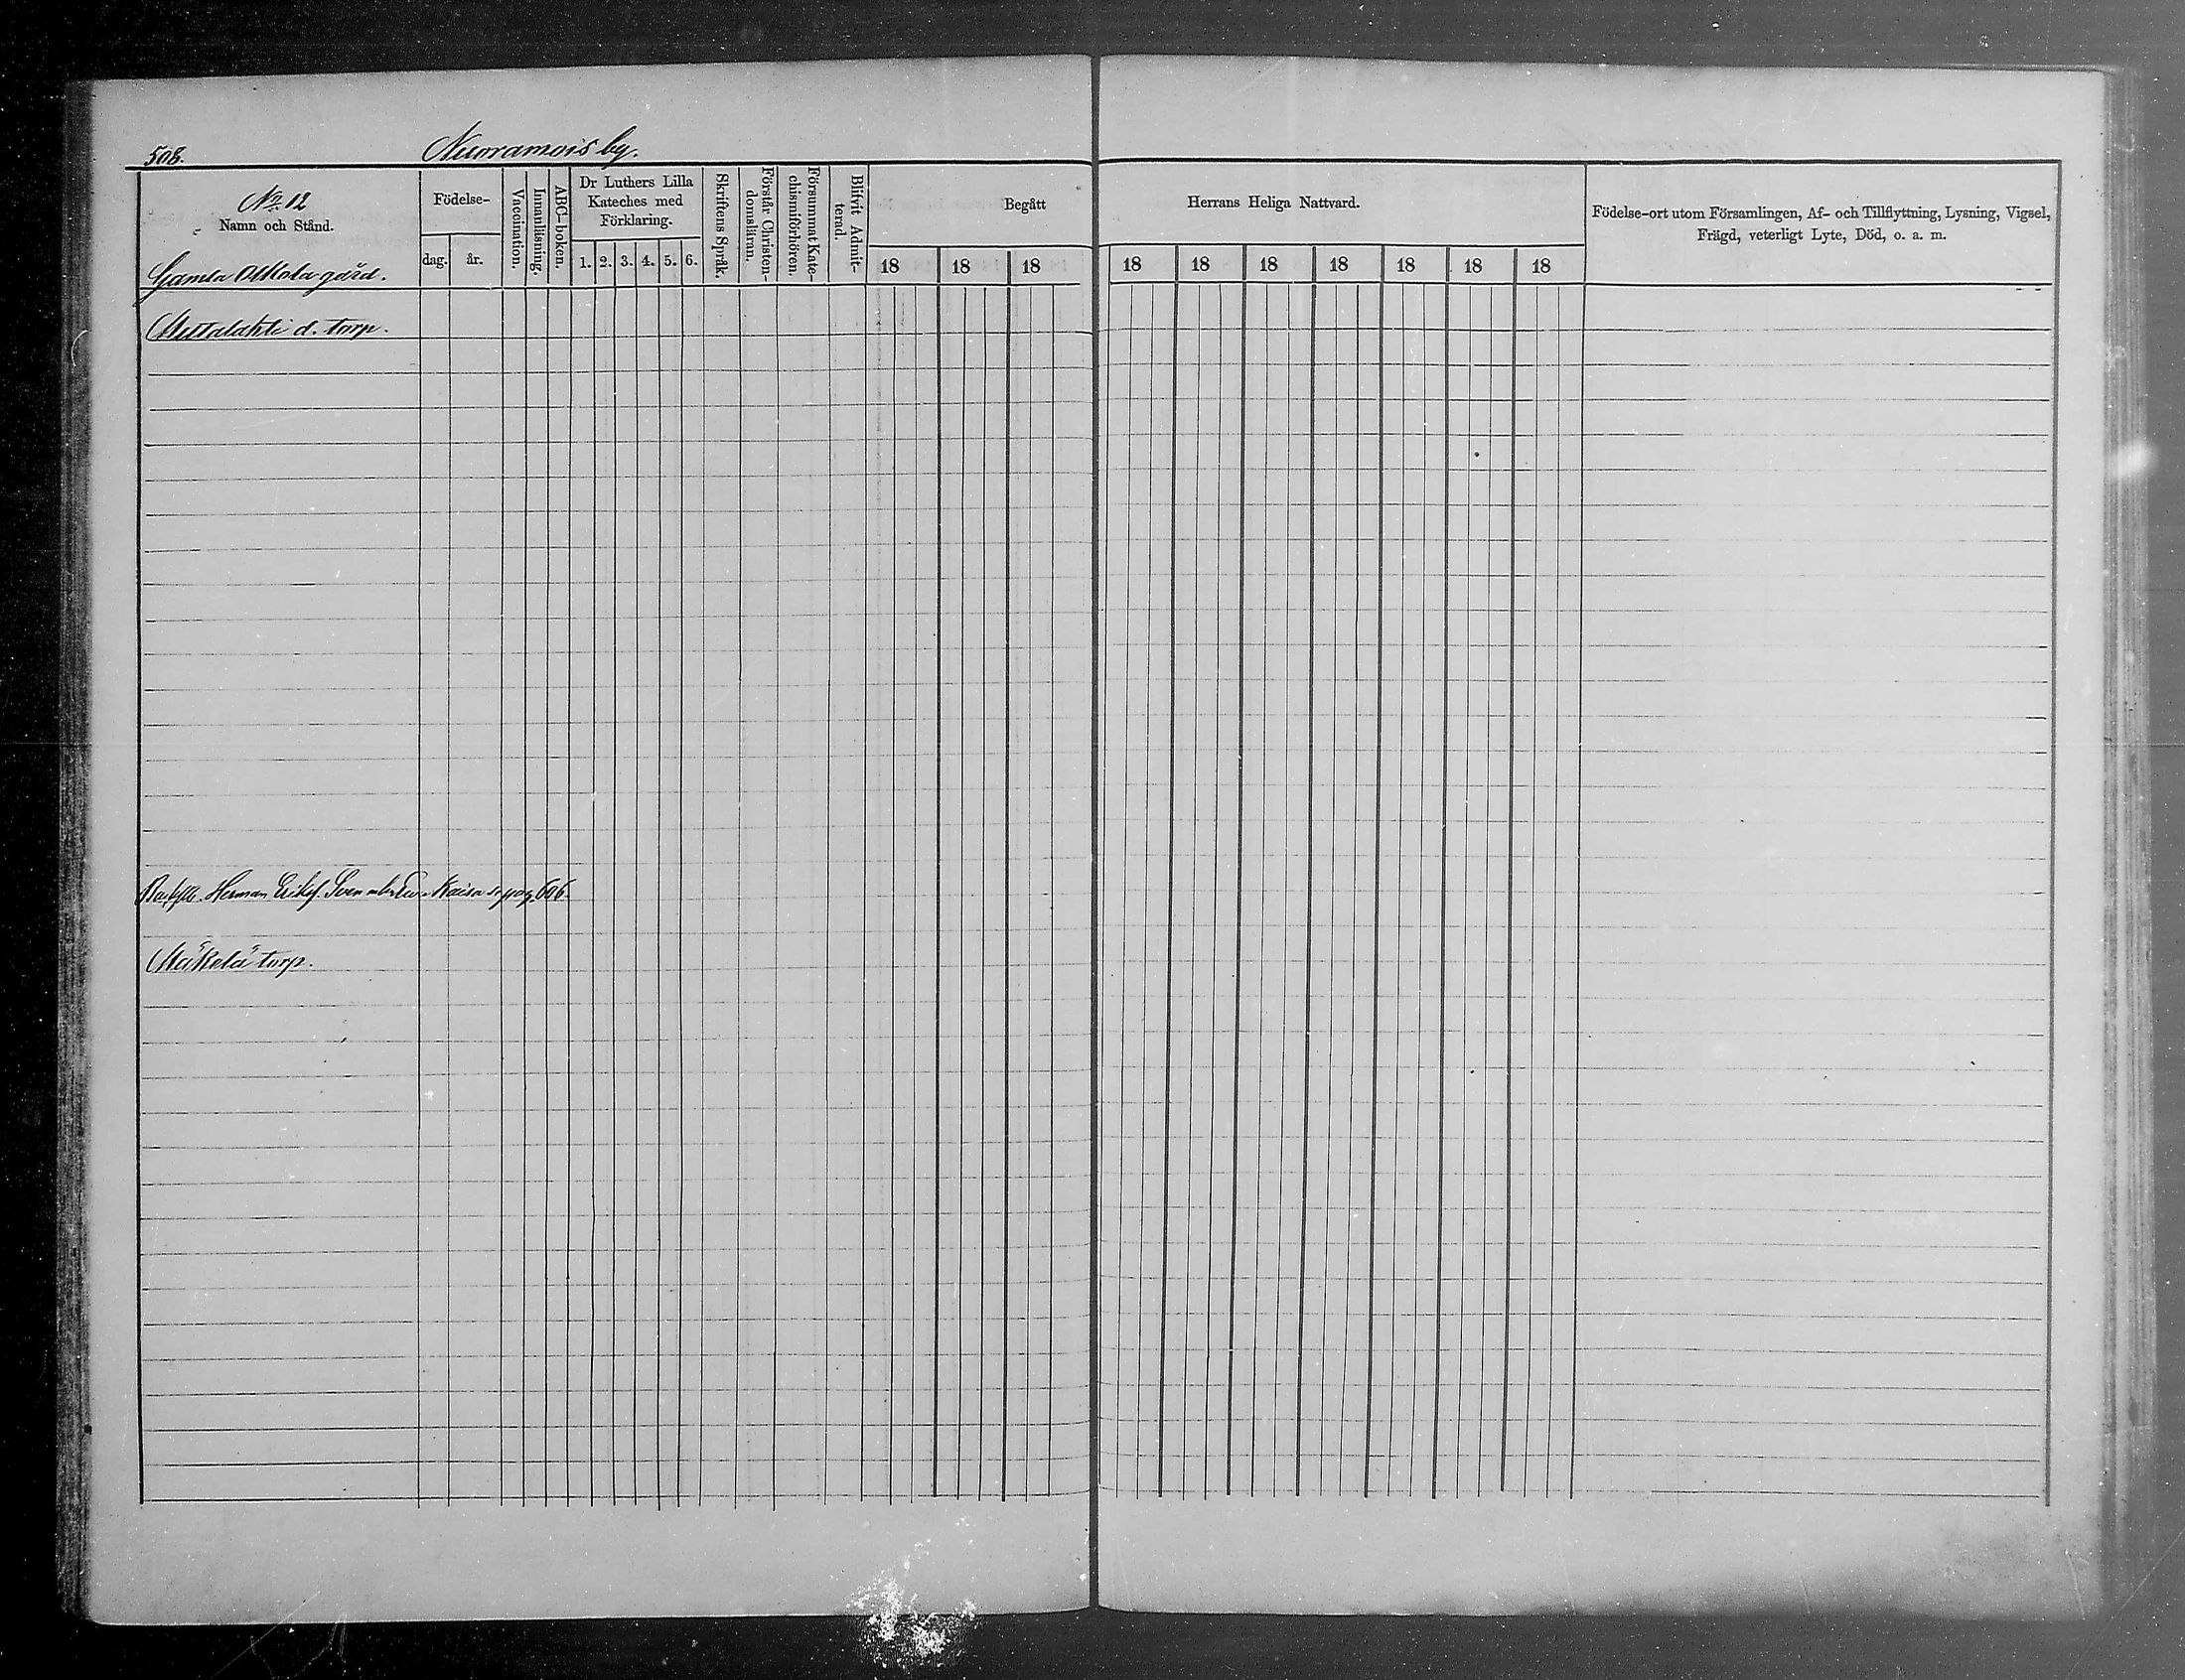 508.
Nuoramois by.
No 12
Namn och Stånd.
Gamla Ollikala gård.
Födelse-
dag.
år.
Vaccination.
Innanläsning.
ABC-boken.
Dr Luthers Lilla
Kateches med
Förklaring.
1. 2. 3. 4. 5. 6.
Skriftens Språk.
Förstår Christen-
domsläran.
Försummat Kate-
chismiförhören.
Blifvit Admit-
terad.
Begått
18 18 18
Herrans Heliga Nattvard.
18 18 18 18 18 18 18
Födelse-ort utom Församlingen, Af- och Tillflyttning, Lysning, Vigsel,
Frägd, veterligt Lyte, Död, o. a. m.
d. torp.
Herman Eriks. Sven Kaisa pag. 606.
Mäkelä torp.